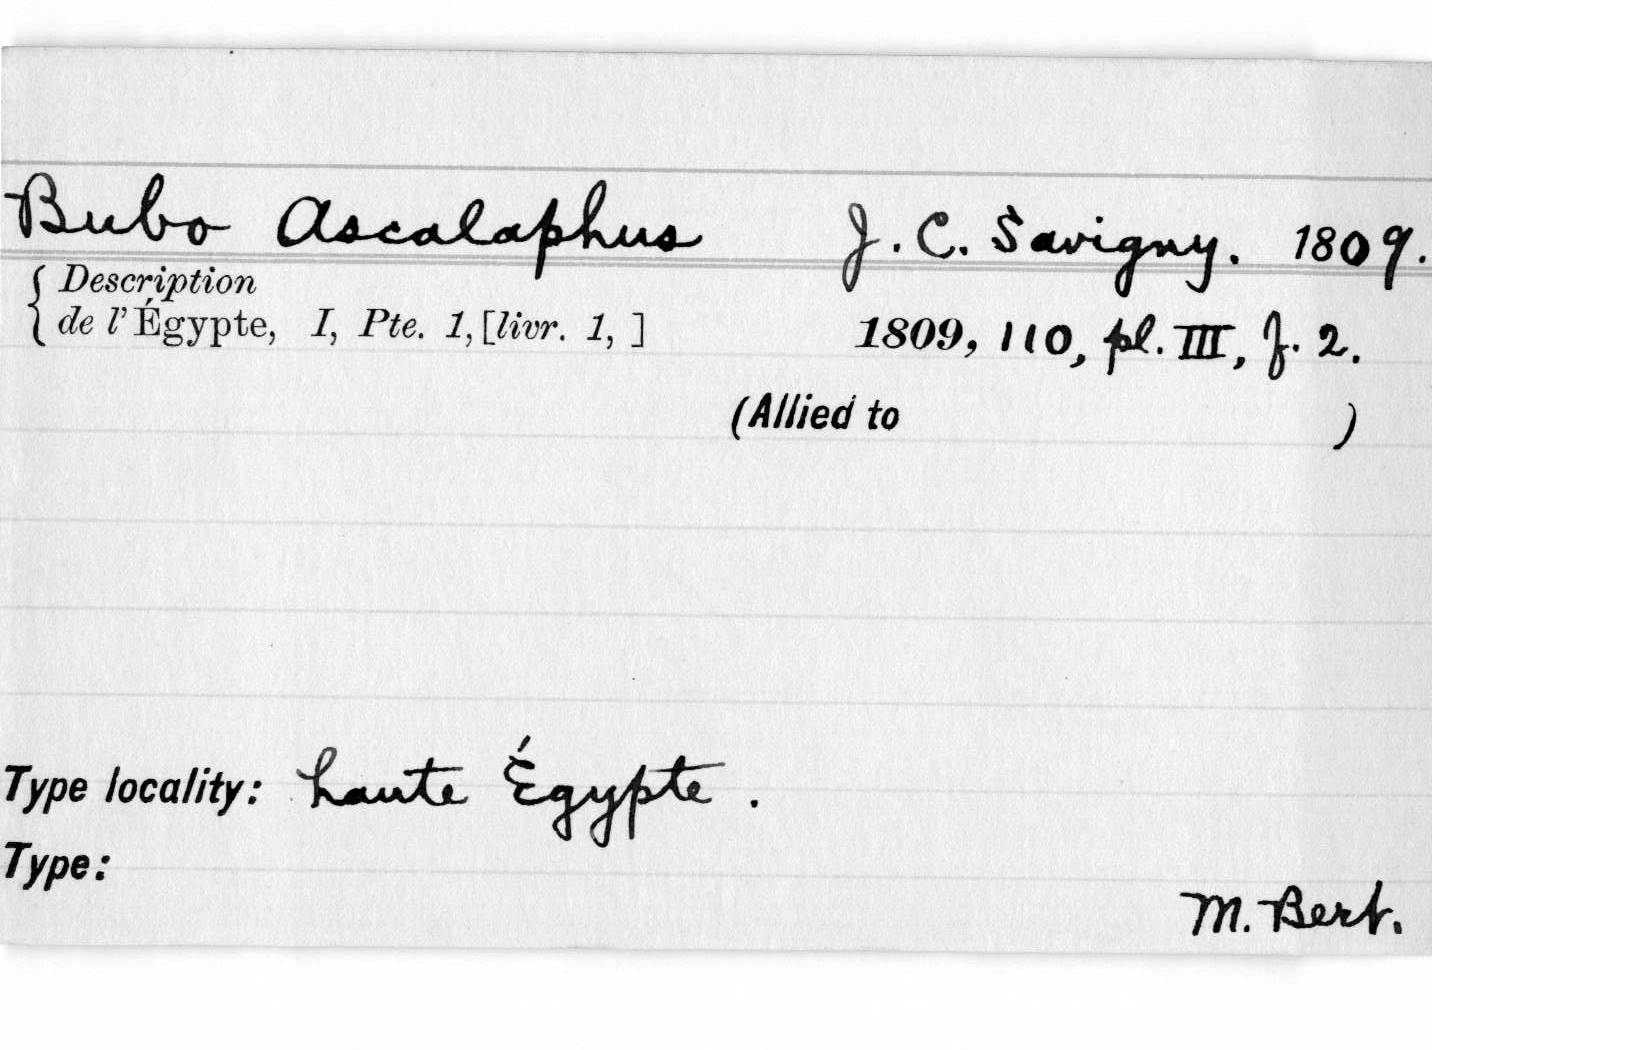 Bubo Ascalaphus J. C. Savigny. 1809.
{ Description
de l'Égypte, I, Pte. 1, [livr. 1, ] 1809, 110, pl. III, f. 2.
(Allied to )
Type locality: haute Égypte.
Type:
M. Bert.